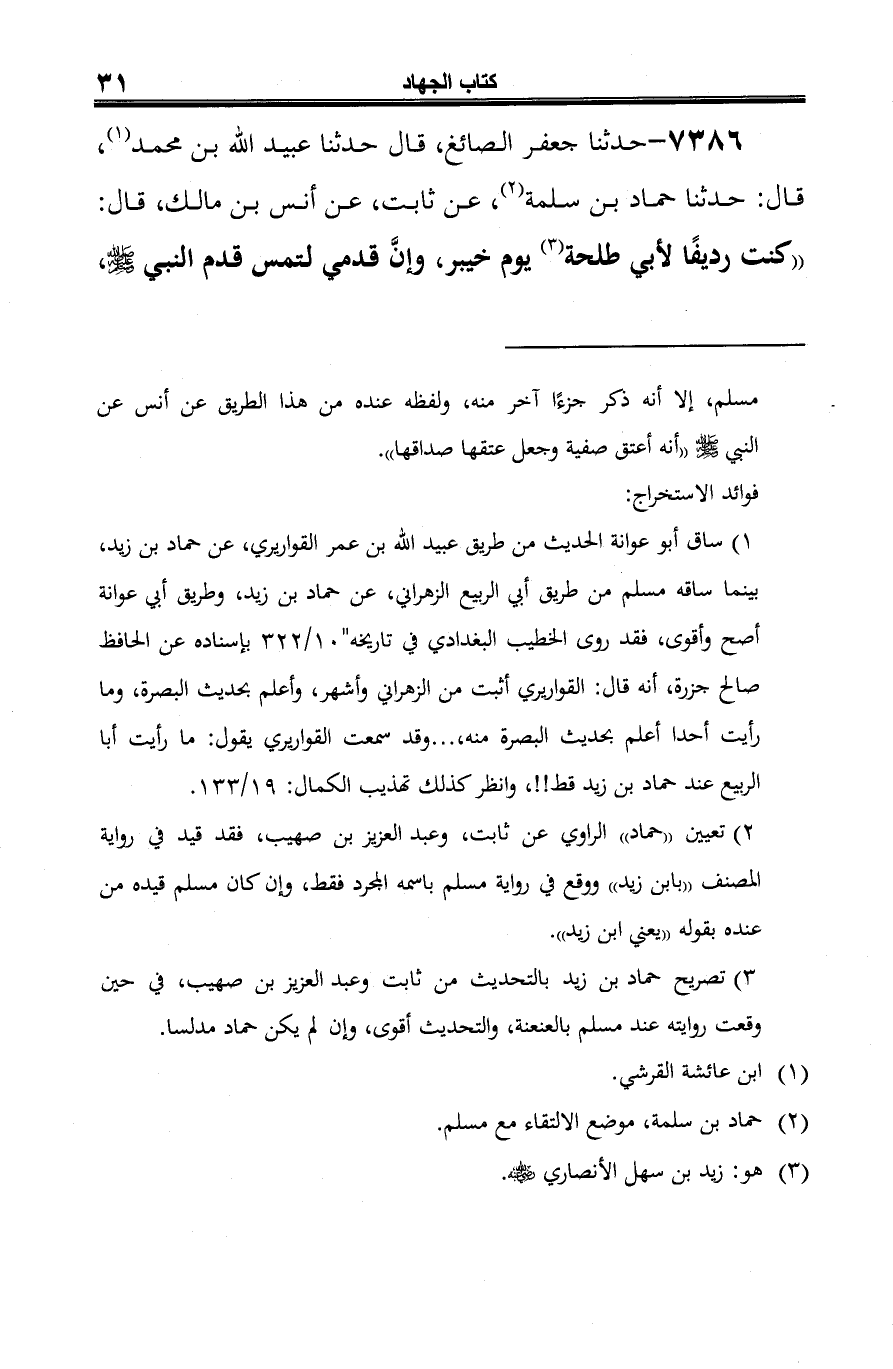 كتاب الجهاد ٣١
٧٣٨٦-حدثنا جعفر الصائغ، قال حدثنا عبيد الله بن محمد(١)،
قال: حدثنا حماد بن سلمة(٢)، عن ثابت، عن أنس بن مالك، قال:
((كنت رديفًا لأبي طلحة(٣) يوم خيبر، وإنَّ قدمي لتمس قدم النبي ﷺ،
مسلم، إلا أنه ذكر جزءًا آخر منه، ولفظه عنده من هذا الطريق عن أنس عن
النبي ﷺ ((أنه أعتق صفية وجعل عتقها صداقها)).
فوائد الاستخراج:
١) ساق أبو عوانة الحديث من طريق عبيد الله بن عمر القواريري، عن حماد بن زيد،
بينما ساقه مسلم من طريق أبي الربيع الزهراني، عن حماد بن زيد، وطريق أبي عوانة
أصح وأقوى، فقد روى الخطيب البغدادي في تاريخه" ٣٢٢/١٠ بإسناده عن الحافظ
صالح جزرة، أنه قال: القواريري أثبت من الزهراني وأشهر، وأعلم بحديث البصرة، وما
رأيت أحدا أعلم بحديث البصرة منه،...وقد سمعت القواريري يقول: ما رأيت أبا
الربيع عند حماد بن زيد قط!!، وانظر كذلك تهذيب الكمال: ١٣٣/١٩.
٢) تعيين ((حماد)) الراوي عن ثابت، وعبد العزيز بن صهيب، فقد قيد في رواية
المصنف ((بابن زيد)) ووقع في رواية مسلم باسمه المجرد فقط، وإن كان مسلم قيده من
عنده بقوله ((يعني ابن زيد)).
٣) تصريح حماد بن زيد بالتحديث من ثابت وعبد العزيز بن صهيب، في حين
وقعت روايته عند مسلم بالعنعنة، والتحديث أقوى، وإن لم يكن حماد مدلسا.
(١) ابن عائشة القرشي.
(٢) حماد بن سلمة، موضع الالتقاء مع مسلم.
(٣) هو: زيد بن سهل الأنصاري رضي الله عنه.